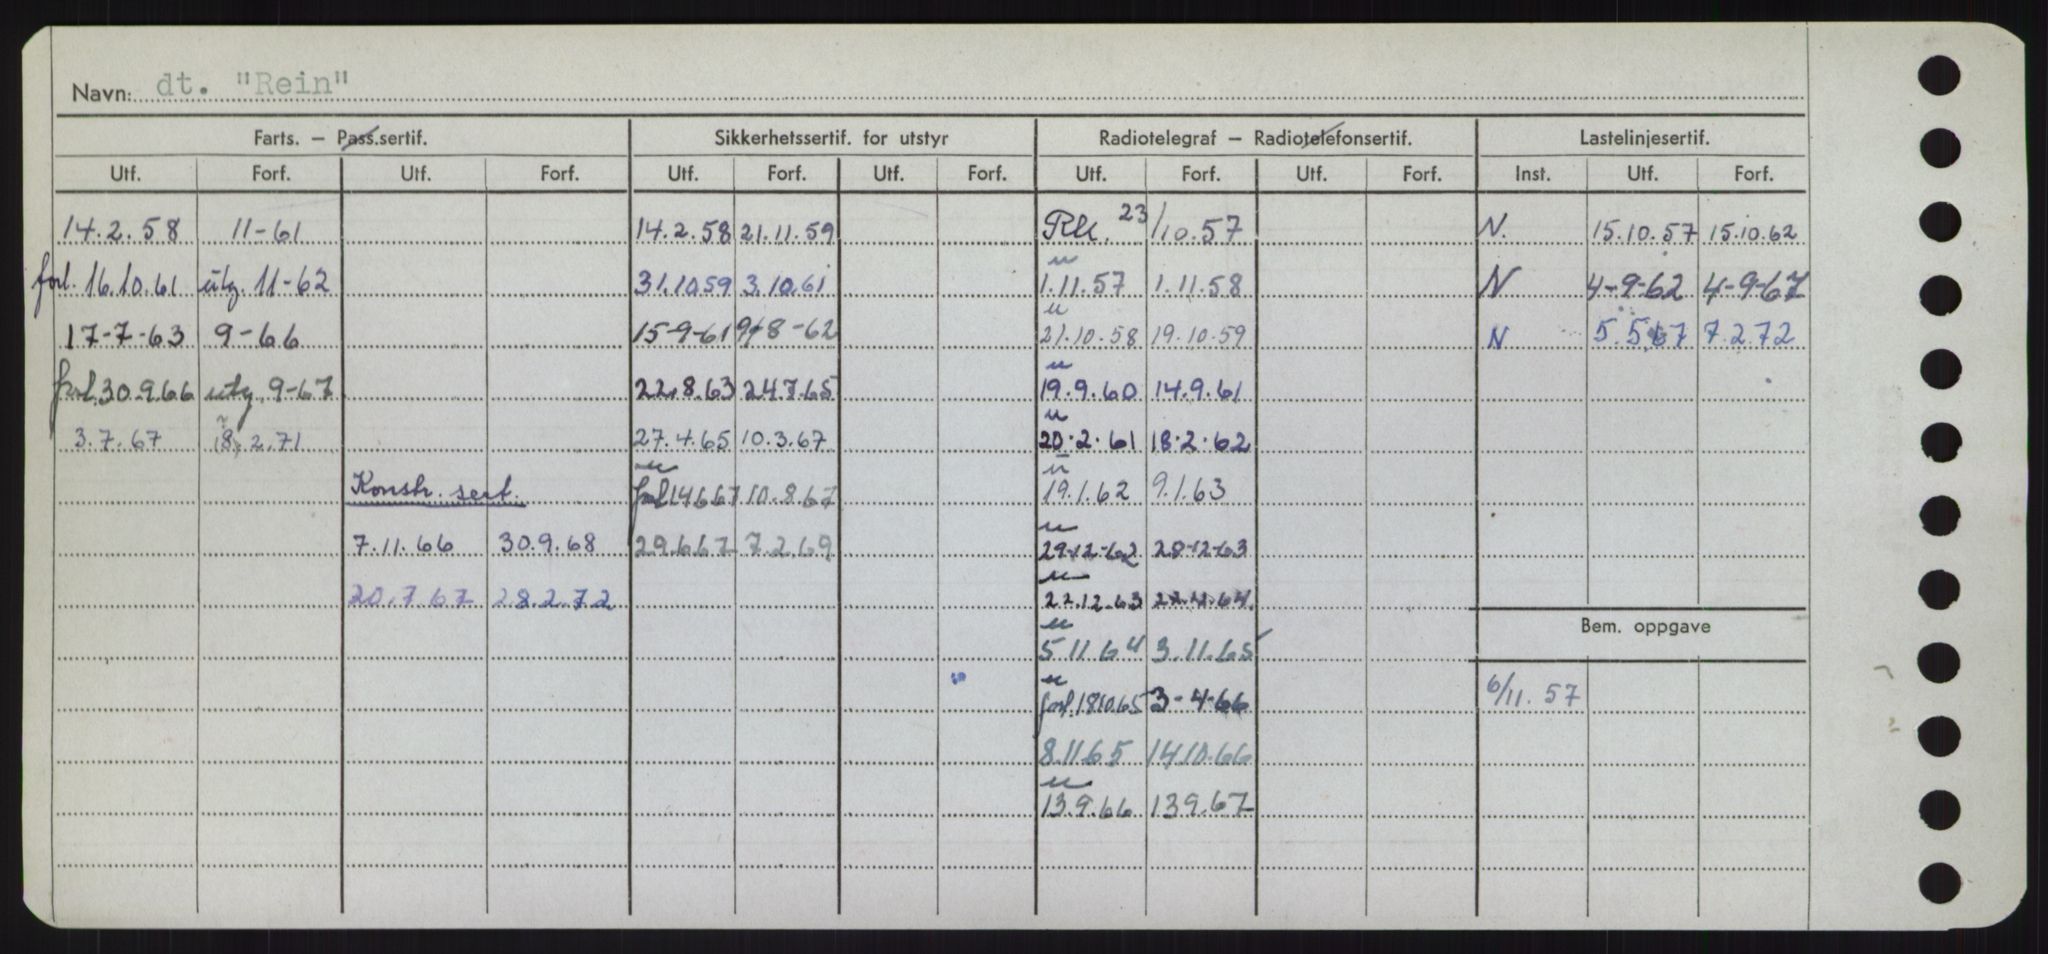 Navn: dt. "Rein"
Farts. — Pass.sertif. Sikkerhetssertif. for utstyr Radiotelegraf — Radiotelefonsertif. Lastelinjesertif.
Utf. Forf. Utf. Forf. Utf. Forf. Utf. Forf. Utf. Forf. Utf. Forf. Inst. Utf. Forf.
14.2.58 11-61 14.2.58 21.11.59 23/10.57 N. 15.10.57 15.10.62
forl. 16.10.61 utg. 11-62 31.10.59 3.10.61 1.11.57 1.11.58 N 4-9-62 4-9-67
17-7-63 9-66 15-9-61 9-8-62 21.10.58 19.10.59 N 5.5.67 7.2.72
forl. 30.9.66 utg. 9-67 22.8.63 24.7.65 19.9.60 14.9.61
3.7.67 2.71 27.4.65 10.3.67 20.2.61 18.2.62
Konstr. sert. forl 14.6.67 10.8.67 19.1.62 9.1.63
7.11.66 30.9.68 29.6.67 7.2.69 29-12-62 28-12-63
20.7.67 28.2.72 22.12.63 22.12.64
Bem. oppgave
5 11 64 3.11.65
forl. 18.10.65 3-4-66 6/11.57
8.11.65 14.10.66
13.9.66 13.9.67